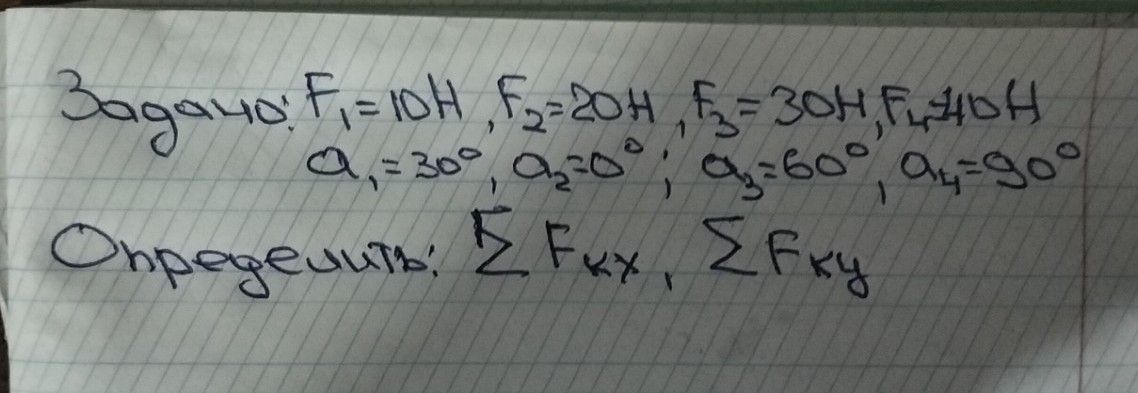 Задача: F₁=10Н, F₂=20Н, F₃=30Н, F₄=40Н
a₁=30°, a₂=0°; a₃=60°, a₄=90°
Определить: ∑Fкх, ∑Fку